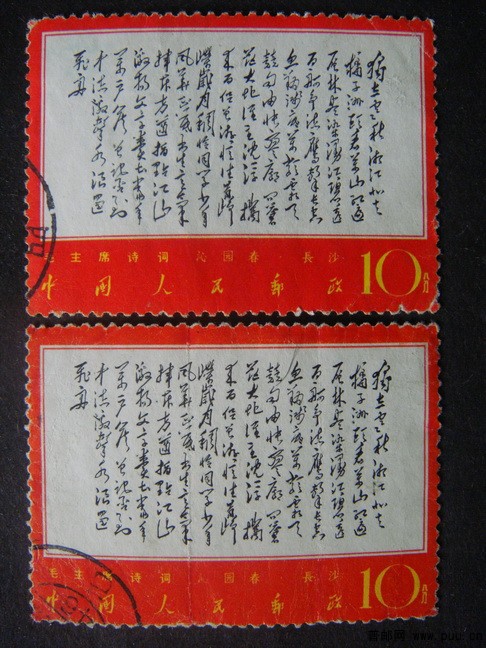 独立寒秋湘江北去
橘子洲头看万山红遍
层林尽染漫江碧透
百舸争流鹰击长空
鱼翔浅底万类霜天
竞自由怅寥廓问苍
茫大地谁主沉浮 携
来百侣曾游忆往昔峥
嵘岁月稠恰同学少年
风华正茂书生意气
挥斥方遒指点江山
激扬文字粪土当年
万户侯曾记否到
中流击水浪遏
飞舟
毛主席诗词 沁园春·長沙
中国人民邮政 10分
独立寒秋湘江北去
橘子洲头看万山红遍
层林尽染漫江碧透
百舸争流鹰击长空
鱼翔浅底万类霜天
竞自由怅寥廓问苍
茫大地谁主沉浮 携
来百侣曾游忆往昔峥
嵘岁月稠恰同学少年
风华正茂书生意气
挥斥方遒指点江山
激扬文字粪土当年
万户侯曾记否到
中流击水浪遏
飞舟
毛主席诗词 沁园春·長沙
中国人民邮政 10分